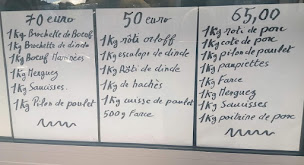 70 euro
1kg Brochette de Boeuf
1kg Brochette de dinde
1kg Boeuf
1kg Merguez
1kg Saucisses.
1kg Pilon de poulet
50 euro
1kg rôti orloff
1kg escalope de dinde
1kg Rôti de dinde
1kg de hachés
1kg cuisse de poulet
500g Farce
65,00
1kg roti de porc
1kg cote de porc
1kg pilon de poulet
1kg paupiettes
1kg Farce
1kg Merguez
1kg Saucisses
1kg poitrine de porc